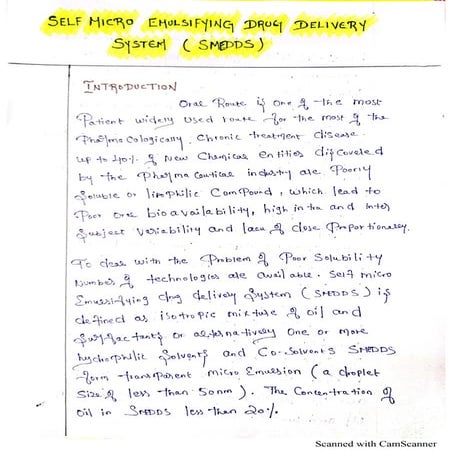 SELF MICRO EMULSIFYING DRUG DELIVERY
SYSTEM (SMEDDS)
INTRODUCTION
Oral Route is one of the most
Patient widely used route for the most of the
Pharmacologically Chronic treatment disease.
up to 40% of New Chemical Entities discovered
by the Pharmaceutical industry are Poorly
Soluble or lipophilic Compound, which lead to
Poor oral bioavailability, high intra and Inter
Subject variability and lack of dose Proportionally.
To deal with the Problem of Poor Solubility
Number of technologies are available. Self micro
Emulsifying drug delivery System (SMEDDS) is
defined as isotropic mixture of Oil and
Surfactants or alternatively One or more
hydrophilic Solvents and Co-Solvents SMEDDS
form transparent micro Emulsion (a droplet
Size of less than 50nm). The Concentration of
Oil in SMEDDS less then 20%.
Scanned with CamScanner